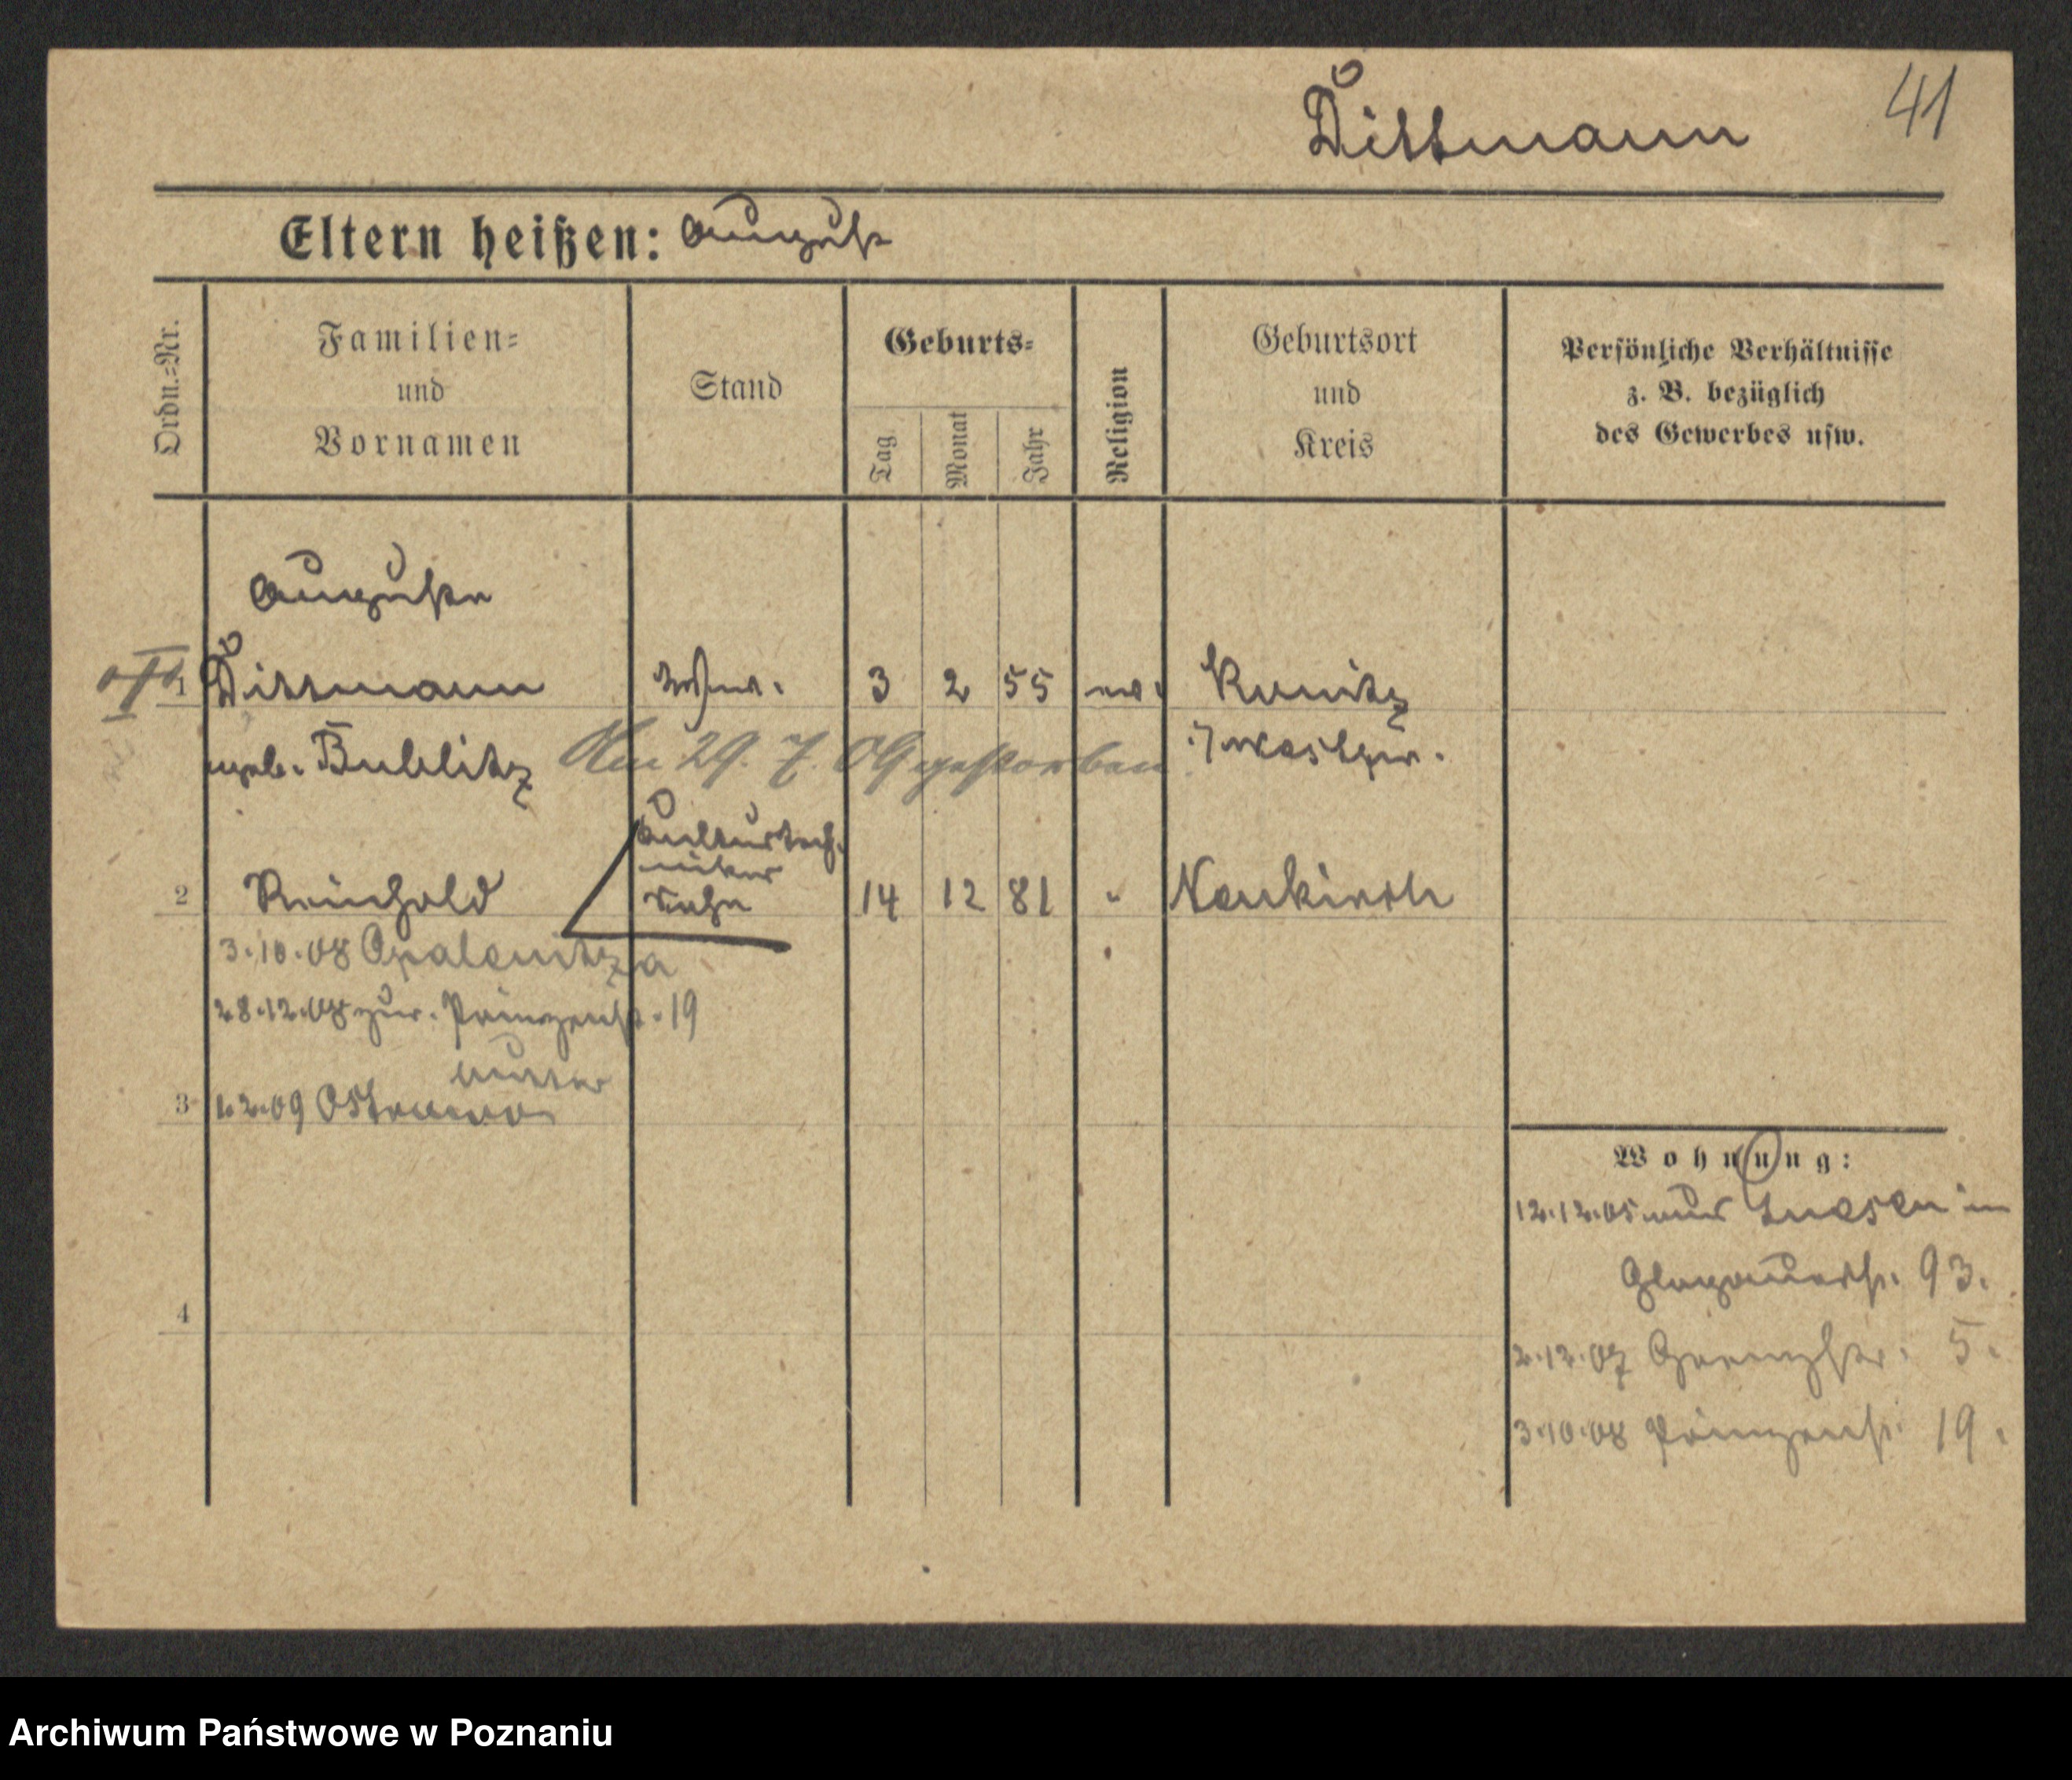 41
Dittmann
Eltern heißen: August
Ordn.=Nr.
Familien=
und
Vornamen
Stand
Geburts=
Tag
Monat
Jahr
Religion
Geburtsort
und
Kreis
Persönliche Verhältnisse
z. B. bezüglich
des Gewerbes usw.
Auguste
1 Dittmann 3 2 55 ev.
geb. Bublitz
Am 29. 7. 09 gestorben
Kulturtech-
niker
2 Reinhold 14 12 81 " Neukirch
3.10.08 Opalenitza
28.12.08 zur. Prinzenstr. 19
Mutter
3 1.2.09 Ostrowo
4
Wohnung:
12.12.05 aus Gnesen in
Glogauerstr. 93.
2.12.07 Grenzstr. 5.
3.10.08 Prinzenstr. 19.
Archiwum Państwowe w Poznaniu